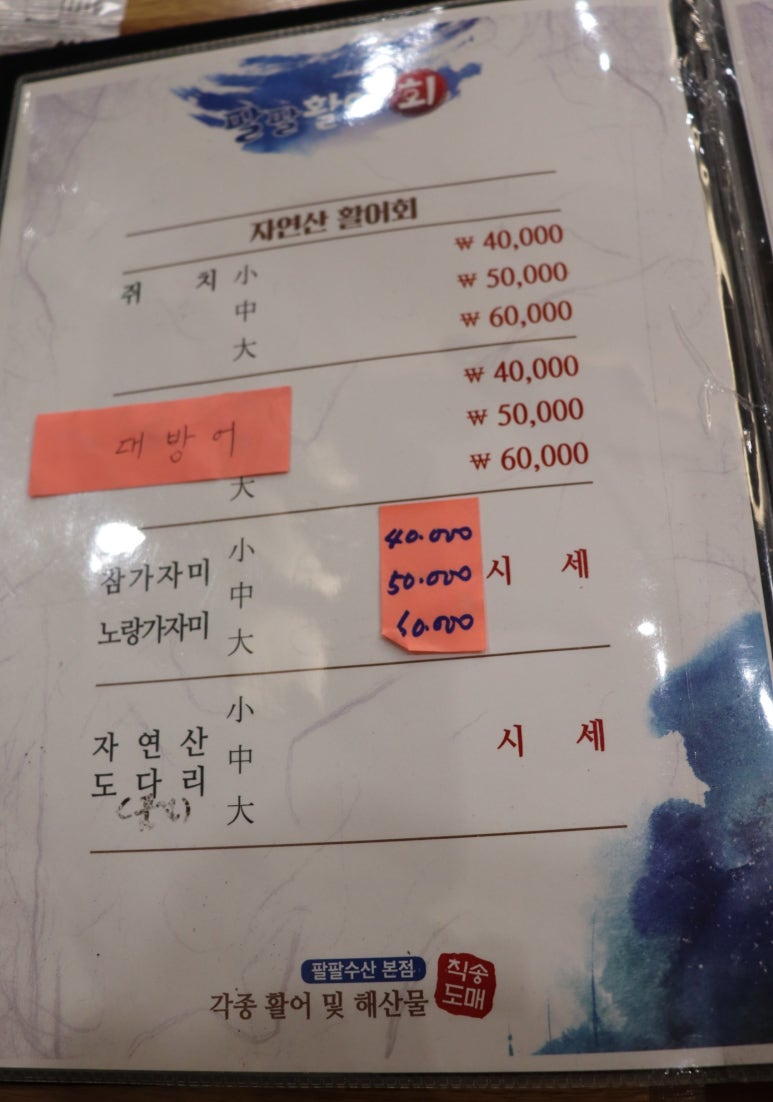 팔팔활어회
자연산 활어회
쥐 치 小 ₩ 40,000
中 ₩ 50,000
大 ₩ 60,000
대방어 ₩ 40,000
₩ 50,000
大 ₩ 60,000
참가자미 小 40.000 시 세
노랑가자미 中 50.000
大 60.000
자 연 산 小 시 세
도 다 리 中
大
팔팔수산 본점 직송
각종 활어 및 해산물 도매